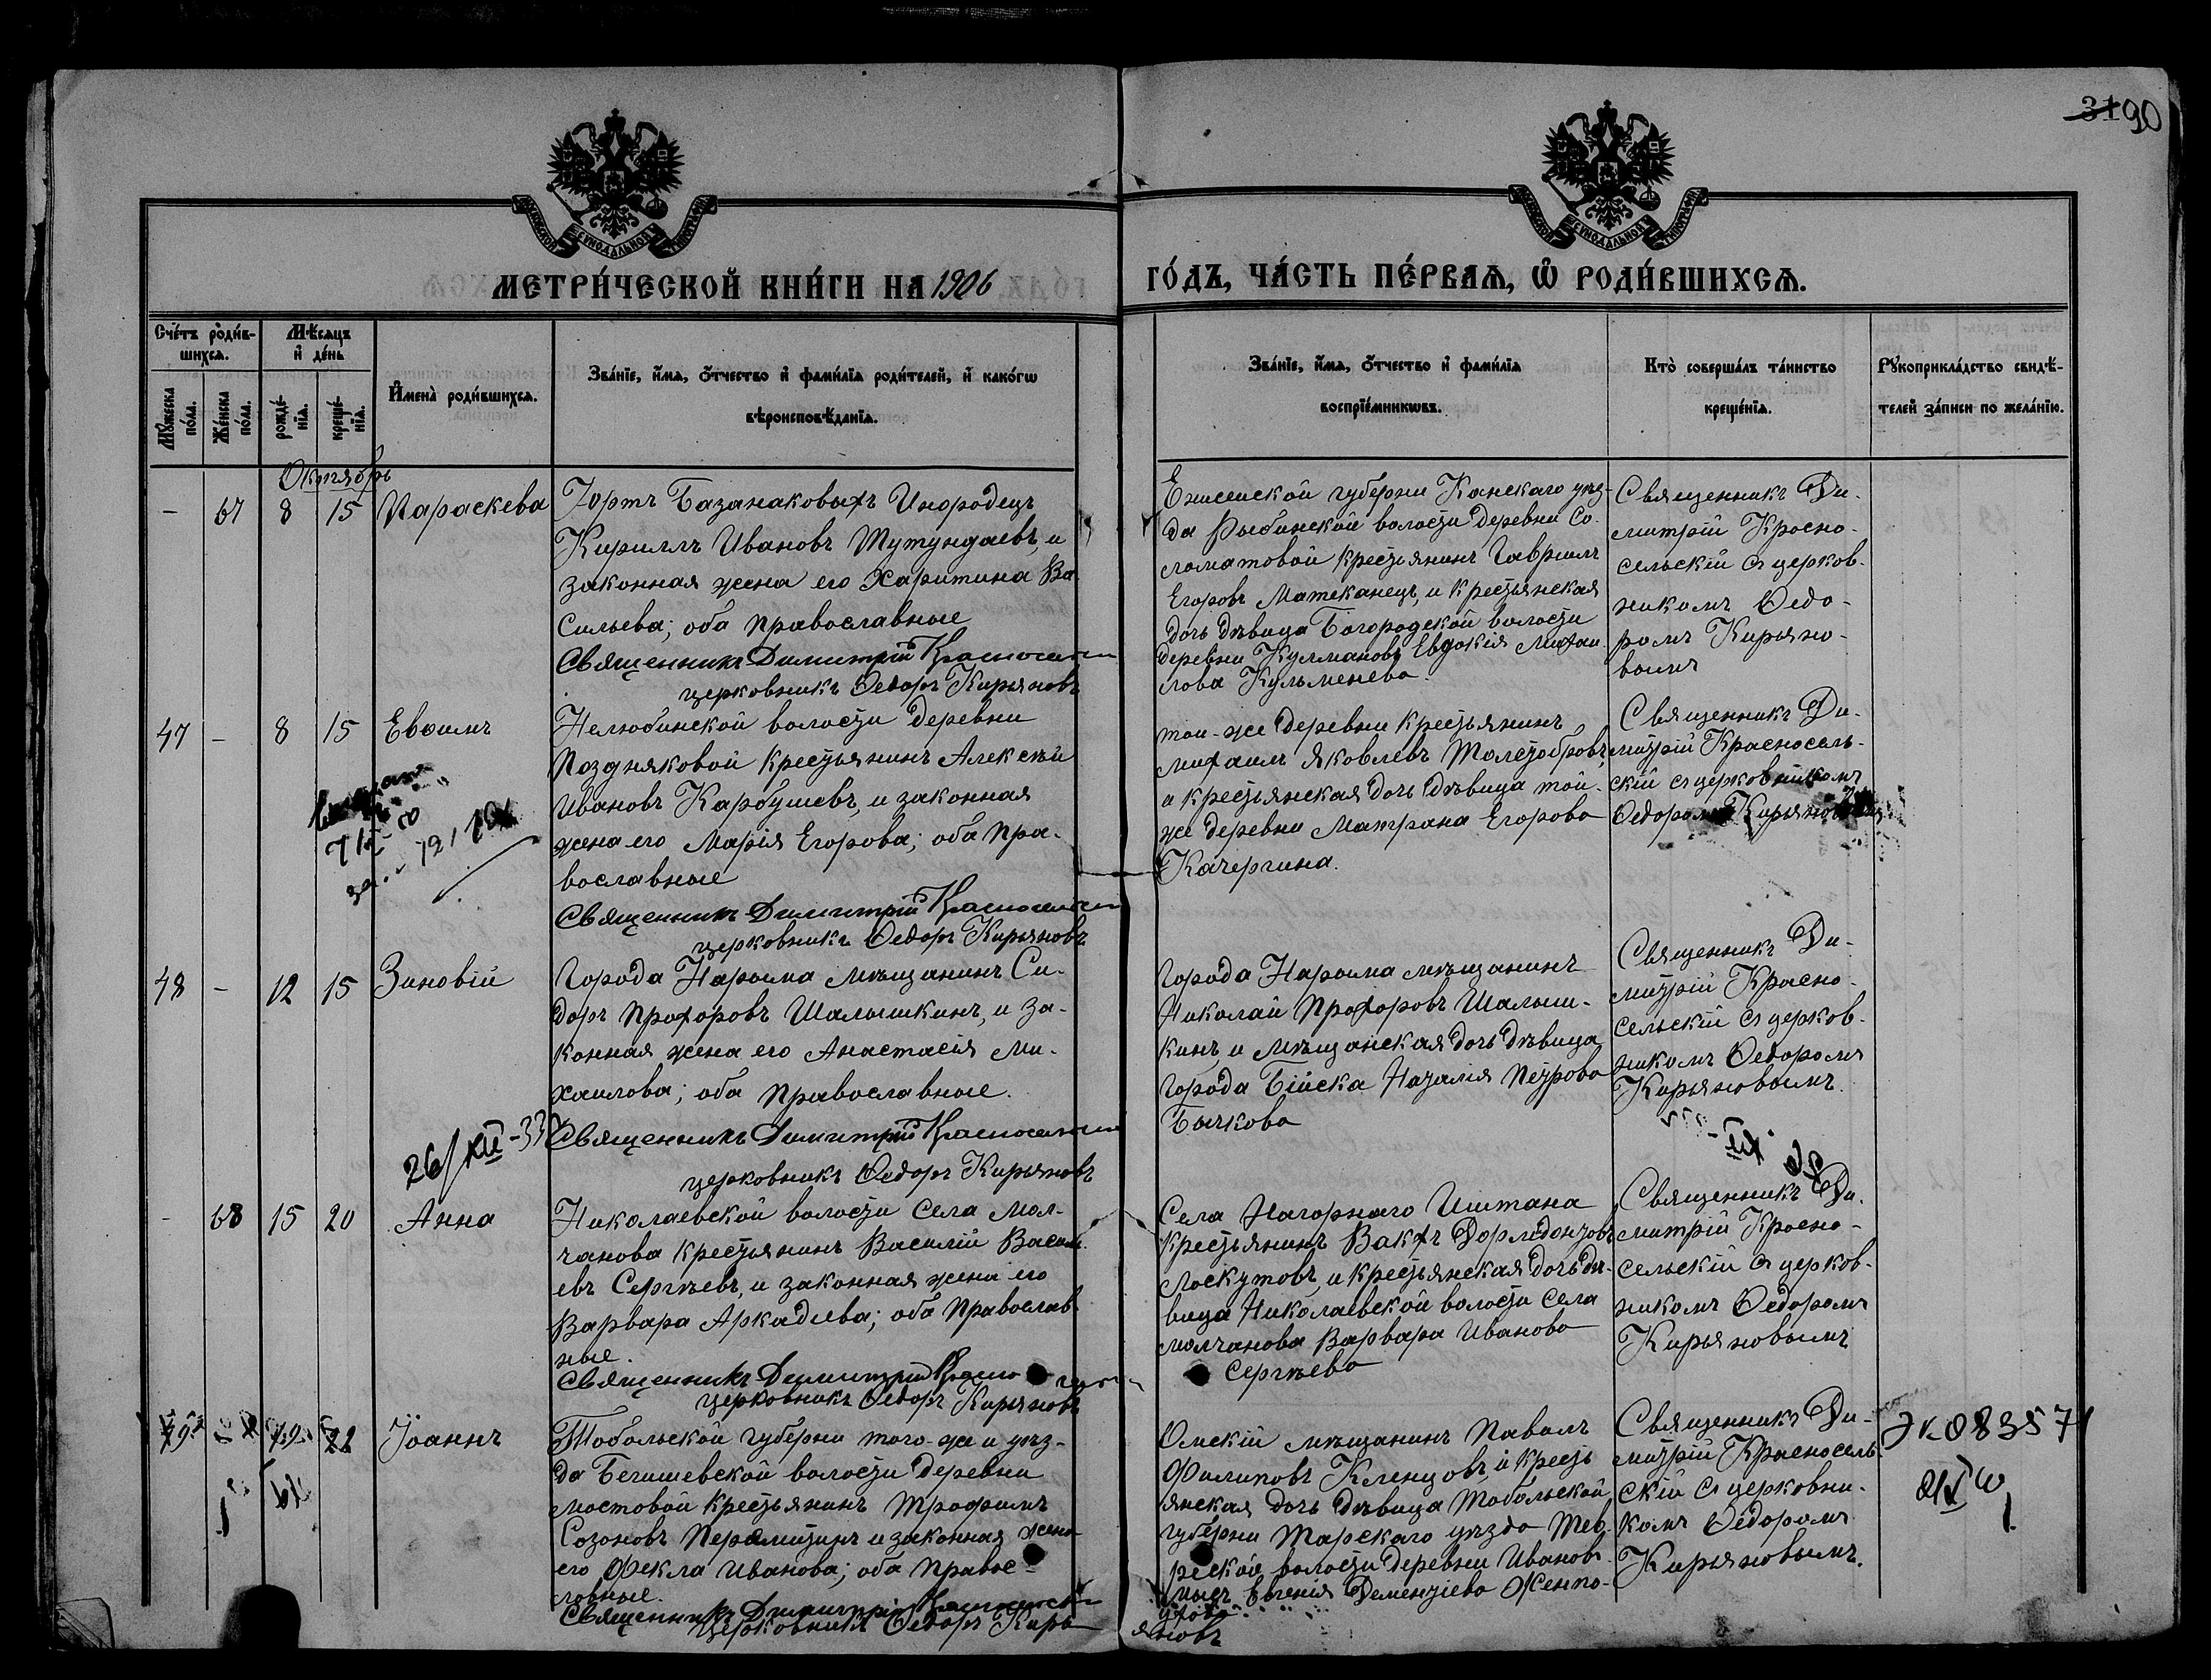 3190
МЕТРИ́ЧЕСКОЙ КНИ́ГИ НА 1906
ГО́ДЪ, ЧА́СТЬ ПЕ́РВАѦ, Ѽ РОДИ́ВШИХСѦ.
Счётъ роди́в-
шихсѧ.
Мѣ́сѧцъ
и҆ де́нь
Мꙋ́жеска по́ла.
Же́нска по́ла.
рожде́-
нїѧ.
креще́-
нїѧ.
И҆мена̀ роди́вшихсѧ.
Зва́нїе, и҆́мѧ, ѻ҆́тчество и҆ фами́лїѧ роди́телей, и҆ како́гѡ
вѣроисповѣ́данїѧ.
Зва́нїе, и҆́мѧ, ѻ҆́тчество и҆ фами́лїѧ
воспрїе́мникѡвъ.
Кто̀ соверша́лъ та́инство
креще́нїѧ.
Рꙋкоприкла́дство свидѣ́-
телей за́писи по жела́нїю.
Октябрь
- 67 8 15 Параскева
Юртъ Базанаковыхъ Инородецъ
Кириллъ Ивановъ Тутундаевъ, и
законная жена его Харитина Ва-
сильева; оба православные
Священникъ Димитрій Красносельскій
церковникъ Ѳедоръ Кирьяновъ
Енисейской губерни Канскаго уѣз-
да Рыбинской волости деревни Со-
ломатовой крестьянинъ Гавриилъ
Егоровъ Матеканецъ, и крестьянская
дочь дѣвица Богородской волости
деревни Кулмановъ Евдокія Михаи
лова Кульменева.
Священникъ Ди-
митрій Красно-
сельскій съ церков-
никомъ Ѳедо-
ромъ Кирьяно-
вымъ
47 - 8 15 Евѳимъ
Нелюбинской волости деревни
Поздняковой крестьянинъ Алексѣй
Ивановъ Карбушевъ, и законная
жена его Марія Егорова; оба пра-
вославные
Священникъ Димитрій Красносельскій
церковникъ Ѳедоръ Кирьяновъ
той-же деревни крестьянинъ
Михаилъ Яковлевъ Толстобровъ,
и крестьянская дочь дѣвица той-
же деревни Матрона Егорова
Качергина.
Священникъ Ди-
митрій Красносель-
скій съ церковникомъ
Ѳедоромъ Кирьяновымъ
48 - 12 15 Зиновій
Города Нарыма мѣщанинъ Си-
доръ Прохоровъ Шалышкинъ, и за-
конная жена его Анастасія Ми-
хаилова; оба православные.
Священникъ Димитрій Красносельскій
церковникъ Ѳедоръ Кирьяновъ
26/XII-33
Города Нарыма мѣщанинъ
Николай Прохоровъ Шалыш-
кинъ, и мѣщанская дочь дѣвица
города Бійска Наталія Петрова
Бычкова
Священникъ Ди-
митрій Красно-
сельскій съ церков-
никомъ Ѳедоромъ
Кирьяновымъ.
- 68 15 20 Анна
Николаевской волости села Мол-
чанова крестьянинъ Василій Василь-
евъ Сергѣевъ, и законная жена его
Варвара Аркадіева; оба православ-
ные.
Священникъ Димитрій
церковникъ Ѳедоръ Кирьяновъ
Села Нагорнаго Иштана
крестьянинъ Вакхъ Дормедонтовъ
Лоскутовъ, и крестьянская дочь дѣ-
вица Николаевской волости села
Молчанова Варвара Иванова
Сергѣева
Священникъ Ди-
митрій Красно-
сельскій съ церков-
никомъ Ѳедоромъ
Кирьяновымъ
49 19 22 Іоаннъ
Тобольской губерни того-же и уѣз-
да Бегишевской волости деревни
Мостовой крестьянинъ Трофимъ
Созоновъ Перемитинъ и законная жена
его Ѳекла Иванова; оба правос-
лавные.
Священникъ Димитрій Красносельскій
церковникъ Ѳедоръ Кирь
яновъ
Омскій мѣщанинъ Павелъ
Филиповъ Кленцовъ, и кресть
янская дочь дѣвица Тобольской
губерни Тарскаго уѣзда Тев-
ризской волости деревни Ивановъ
мысъ Евгенія Дементіева
Священникъ Ди-
митрій Красносель-
скій съ церковни-
комъ Ѳедоромъ
Кирьяновымъ.